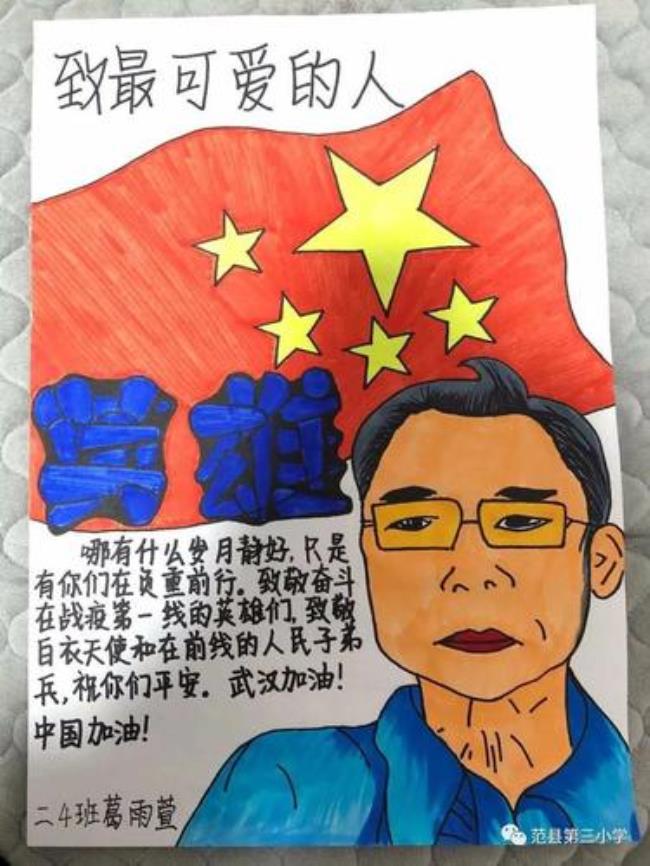 致最可爱的人
英雄
哪有什么岁月静好,只是
有你们在负重前行。致敬奋斗
在战疫第一线的英雄们,致敬
白衣天使和在前线的人民子弟
兵,祝你们平安。武汉加油!
中国加油!
二4班葛雨萱
范县第三小学